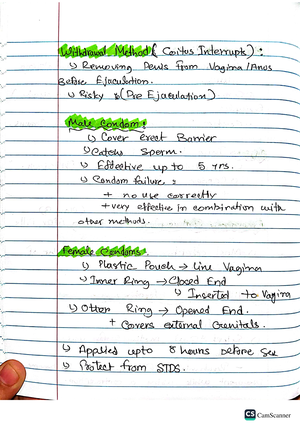 Withdrawal Method ( Coitus Interrupts) :
↳ Removing Penis from Vagina/Anus
Before Ejaculation.
↳ Risky (Pre Ejaculation)
Male Condom:
↳ Cover erect Barrier
↳ Catches Sperm.
↳ Effective up to 5 yrs.
↳ Condom failure :
+ no use correctly
+ very effective in combination with
other methods.
Female Condoms.
↳ Plastic Pouch → Line Vagina
↳ Inner Ring → Closed End
↳ Inserted to Vagina
↳ Outer Ring → Opened End.
+ Covers external Genitals.
↳ Applied upto 8 hours before Sex
↳ Protect from STDS.
CS CamScanner